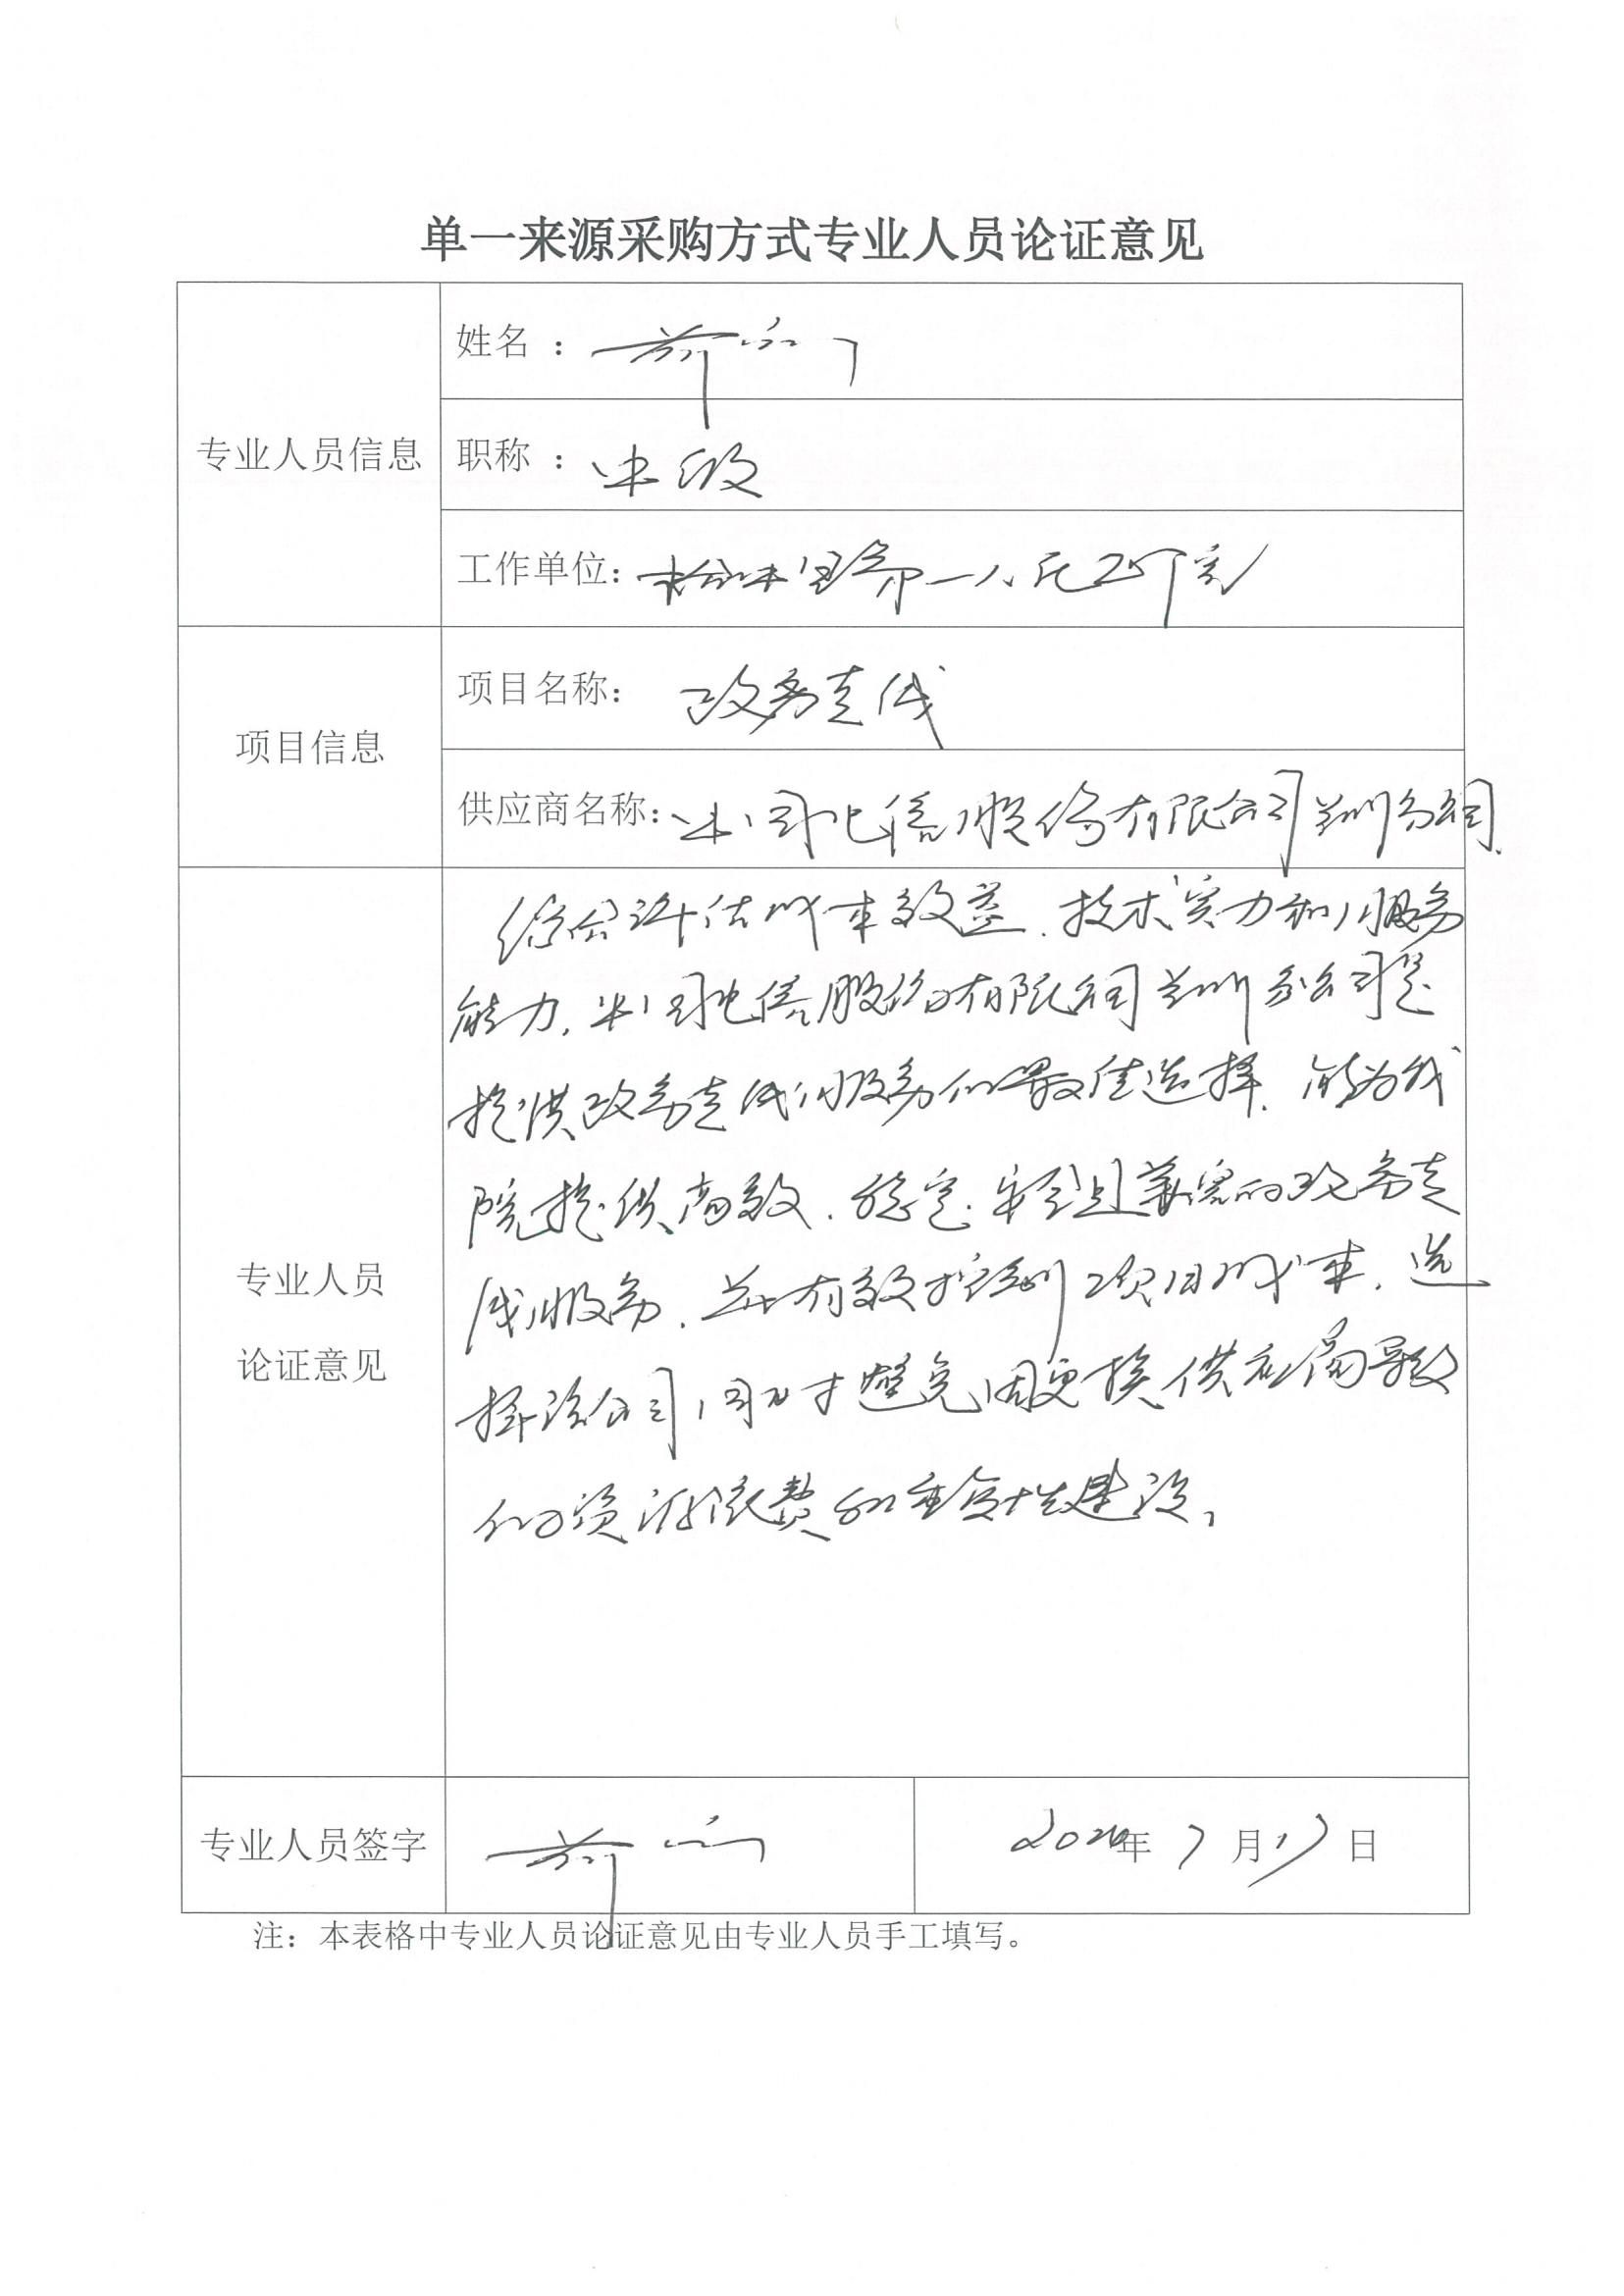 单一来源采购方式专业人员论证意见
专业人员信息
姓名：
职称：中级
工作单位：榆中县第一人民医院
项目信息
项目名称：政务专线
供应商名称：中国电信股份有限公司兰州分公司
专业人员
论证意见
综合评估成本效益、技术实力和服务
能力，中国电信股份有限公司兰州分公司是
提供政务专线服务的最佳选择，能为我
院提供高效、稳定、安全且兼容的政务专
线服务，并有效控制项目成本，选
择该公司，同时才避免因更换供应商导致
的资源浪费和重复性建设。
专业人员签字
2024年7月17日
注：本表格中专业人员论证意见由专业人员手工填写。